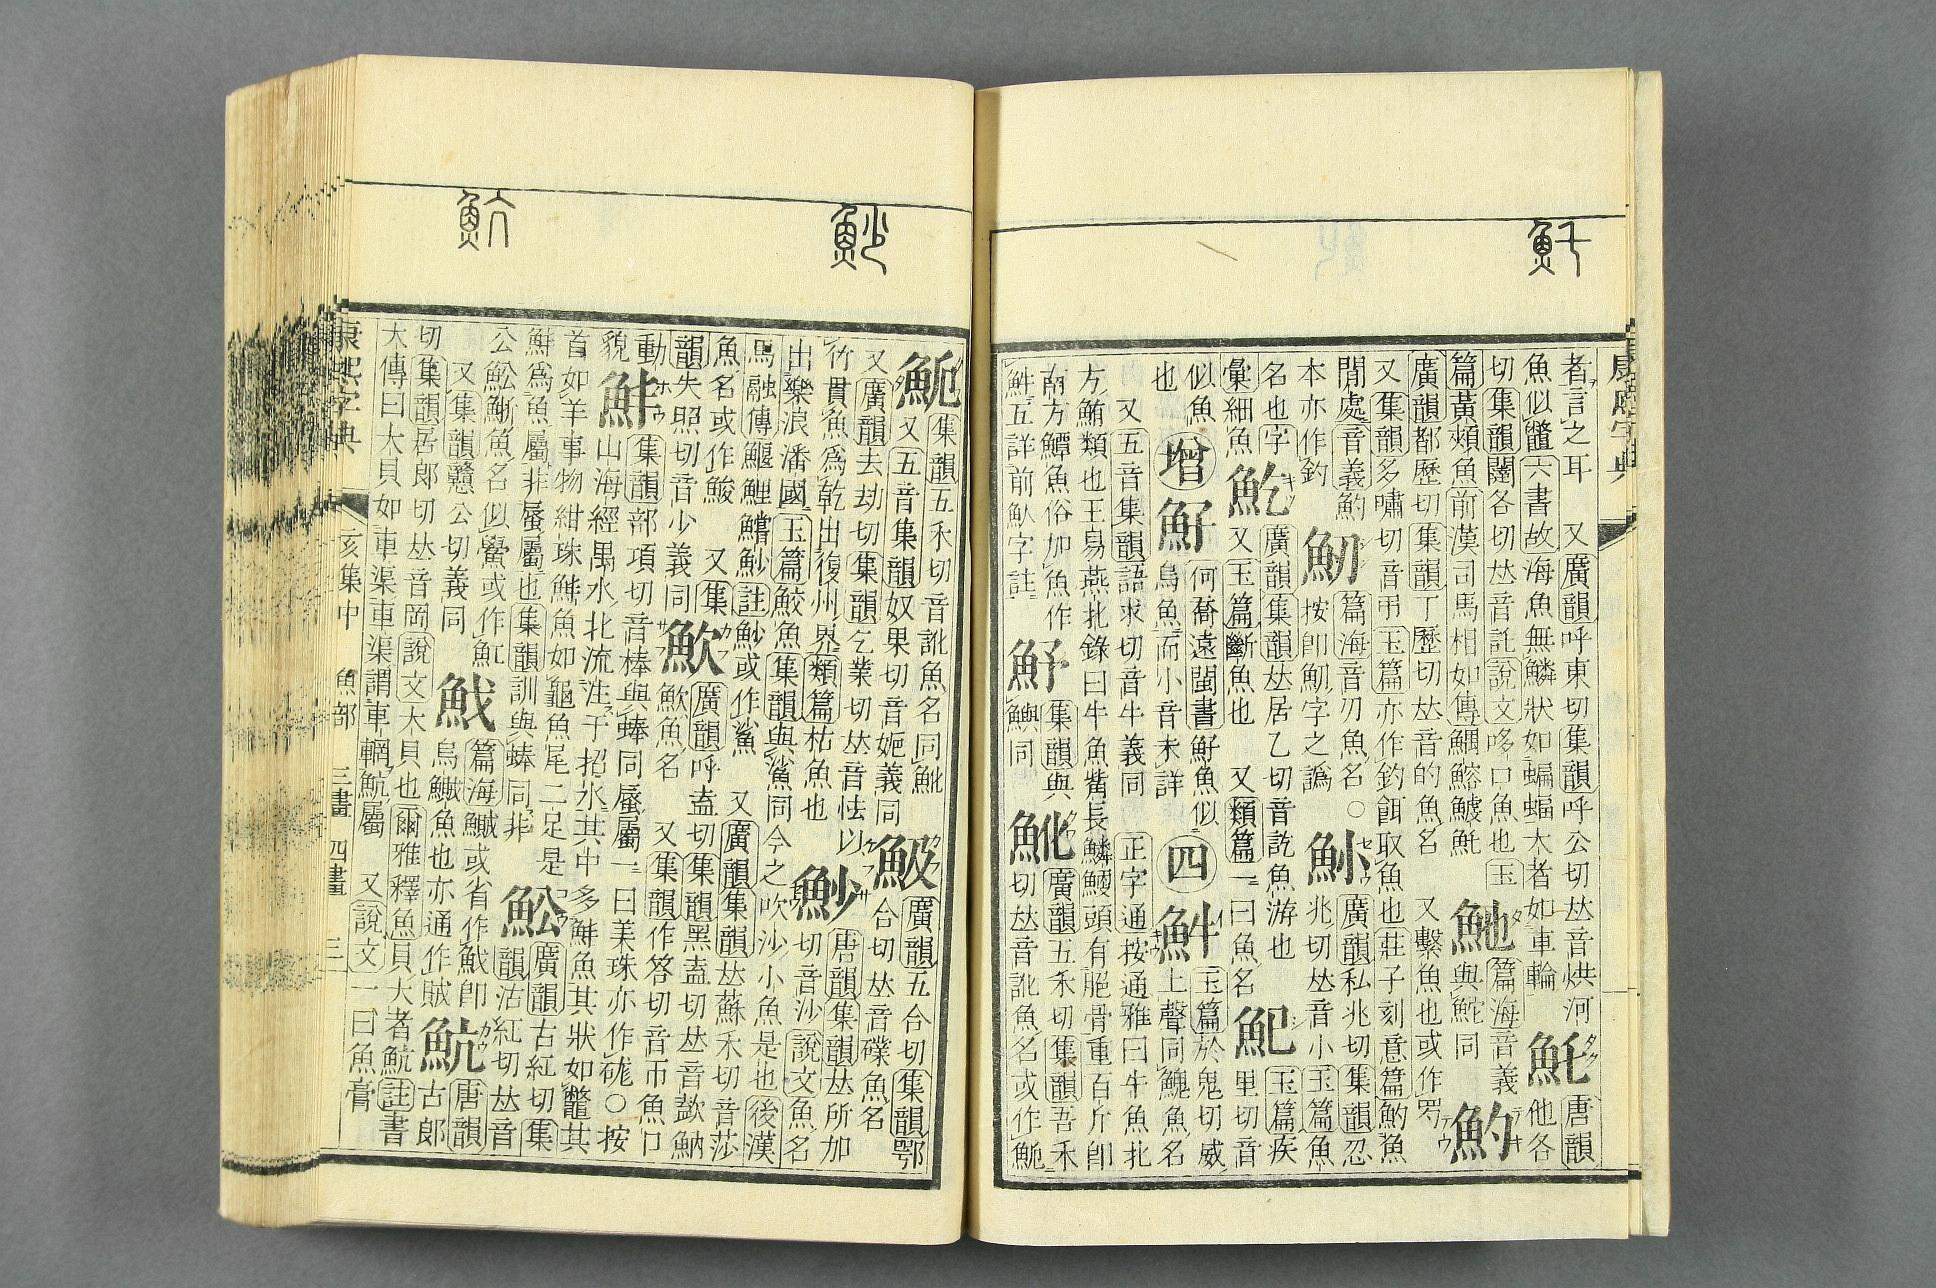 康熙字典
者言之耳 又廣韻呼東切集韻呼公切𠀤音烘河
魚似鼈六書故海魚無鱗狀如蝙蝠大者如車輪
魠
唐韻
他各
切集韻闥各切𠀤音託說文哆口魚也玉
篇黃頰魚前漢司馬相如傳鰅鰫鰬魠
篇海音義
與鮀同
魡
廣韻都歷切集韻丁歷切𠀤音的魚名 又繫魚也或作
又集韻多嘯切音弔玉篇亦作釣餌取魚也莊子刻意篇魡魚
閒處音義魡
本亦作釣
篇海音刃魚名○
按卽魛字之譌
廣韻私兆切集韻忍
兆切𠀤音小玉篇魚
名也字
彙細魚
廣韻集韻𠀤居乙切音訖魚游也
又玉篇斷魚也 又類篇一曰魚名
魢
玉篇疾
里切音
似魚
也
增
何喬遠閩書 魚似
烏魚而小音未詳
四
玉篇於鬼切威
上聲同鮠魚名
又五音集韻語求切音牛義同 正字通按通雅曰牛魚北
方鮪類也王易燕北錄曰牛魚觜長鱗鯁頭有脆骨重百斤卽
南方鱏魚俗加魚作
五詳前魜字註
魣
集韻與
鱮同
魤
廣韻五禾切集韻吾禾
切𠀤音訛魚名或作
集韻五禾切音訛魚名同魤
又五音集韻奴果切音妮義同
魥
廣韻五合切集韻鄂
合切𠀤音磼魚名
又廣韻去劫切集韻乞業切𠀤音怯以
竹貫魚爲乾出復州界類篇枯魚也
魦
唐韻集韻𠀤所加
切音沙說文魚名
出樂浪潘國玉篇鮫魚集韻與鯊同今之吹沙小魚是也後漢
馬融傳鰋鯉鱨魦註魦或作鯊 又廣韻集韻𠀤蘇禾切音莎
魚名或作 又集
韻失照切音少義同
廣韻呼盍切集韻黑盍切𠀤音歃魶
魚名 又集韻作答切音帀魚口
動
貌
集韻部項切音棒與蜯同蜃屬一曰美珠亦作硥○按
山海經禺水北流注于招水其中多 魚其狀如鼈其
首如羊事物紺珠 魚如龜魚尾二足是
爲魚屬非蜃屬也集韻訓與蜯同非
廣韻古紅切集
韻沽紅切𠀤音
公 魚名似鱟或作魟
又集韻戇公切義同
篇海鰄或省作 卽
烏鰂魚也亦通作賊
魧
唐韻
古郎
切集韻居郎切𠀤音岡說文大貝也爾雅釋魚貝大者魧註書
大傳曰大貝如車渠車渠謂車輞魧屬 又說文一曰魚膏
康熙字典 亥集中 魚部 三畫 四畫 三